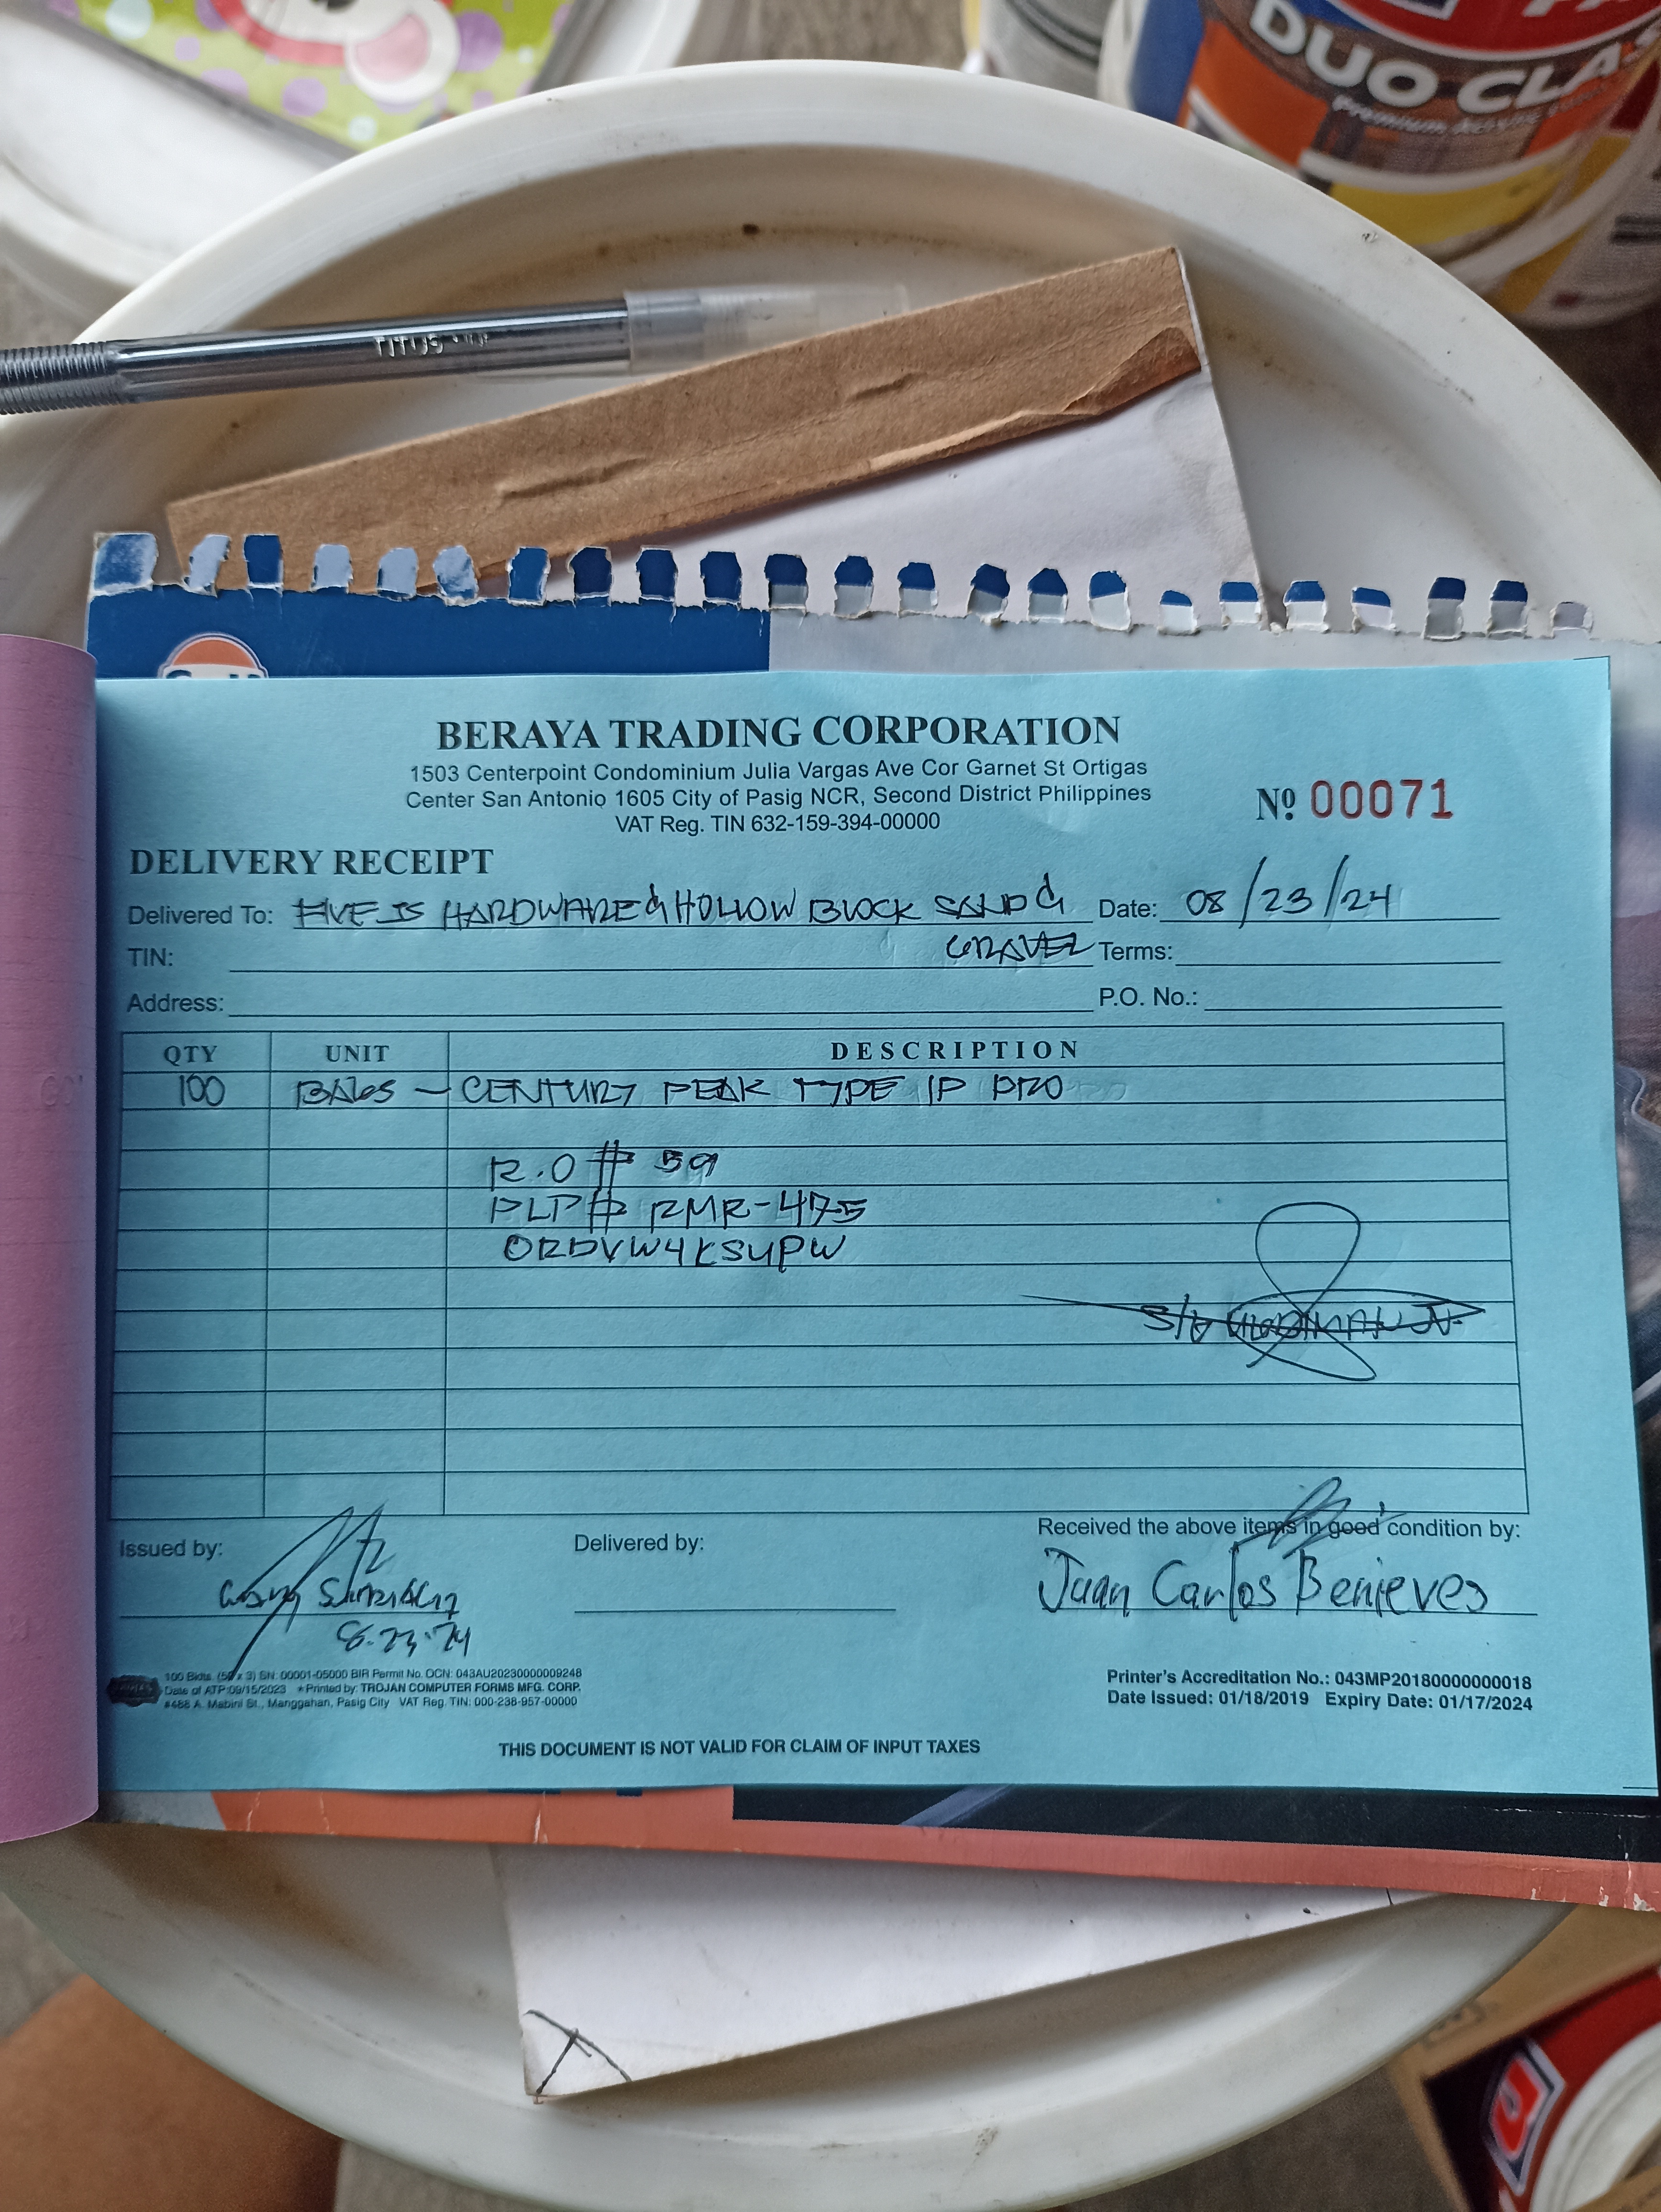 DUO CLAS
Premium Acrylic
TITUS
BERAYA TRADING CORPORATION
1503 Centerpoint Condominium Julia Vargas Ave Cor Garnet St Ortigas
Center San Antonio 1605 City of Pasig NCR, Second District Philippines
VAT Reg. TIN 632-159-394-00000
Nº 00071
DELIVERY RECEIPT
Delivered To: FIVE JS HARDWARE & HOLLOW BLOCK SAND & Date: 08/23/24
GRAVEL
TIN: Terms:
Address: P.O. No.:
QTY UNIT DESCRIPTION
100 BAGS - CENTURY PEAK TYPE 1P PRO
R.O # 59
PLP# RMR-475
ORDVW4KSUPW
Issued by: Delivered by: Received the above items in good condition by:
Juan Carlos Benieves
8.23.24
100 Bklts. (50 x 3) SN: 00001-05000 BIR Permit No. OCN: 043AU20230000009248
Date of ATP:09/15/2023 *Printed by: TROJAN COMPUTER FORMS MFG. CORP.
#488 A. Mabini St., Manggahan, Pasig City VAT Reg. TIN: 000-238-957-00000
Printer's Accreditation No.: 043MP20180000000018
Date Issued: 01/18/2019 Expiry Date: 01/17/2024
THIS DOCUMENT IS NOT VALID FOR CLAIM OF INPUT TAXES